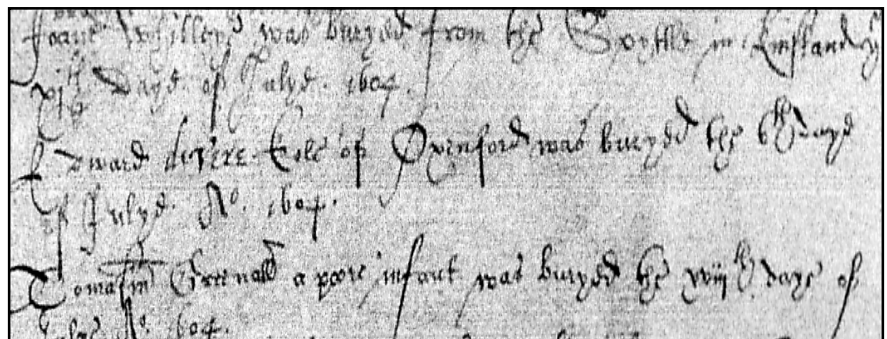 Joane Whitley was buryed from the Spytlle in Kinsland y
xith Daye of Julye. 1604.
Edward deVere Erle of Oxenford was buryed the 6th daye
of Julye. Ao. 1604.
Tomasin Greenall a poore infant was buryed the viijth daye of
Julye Ao. 1604.